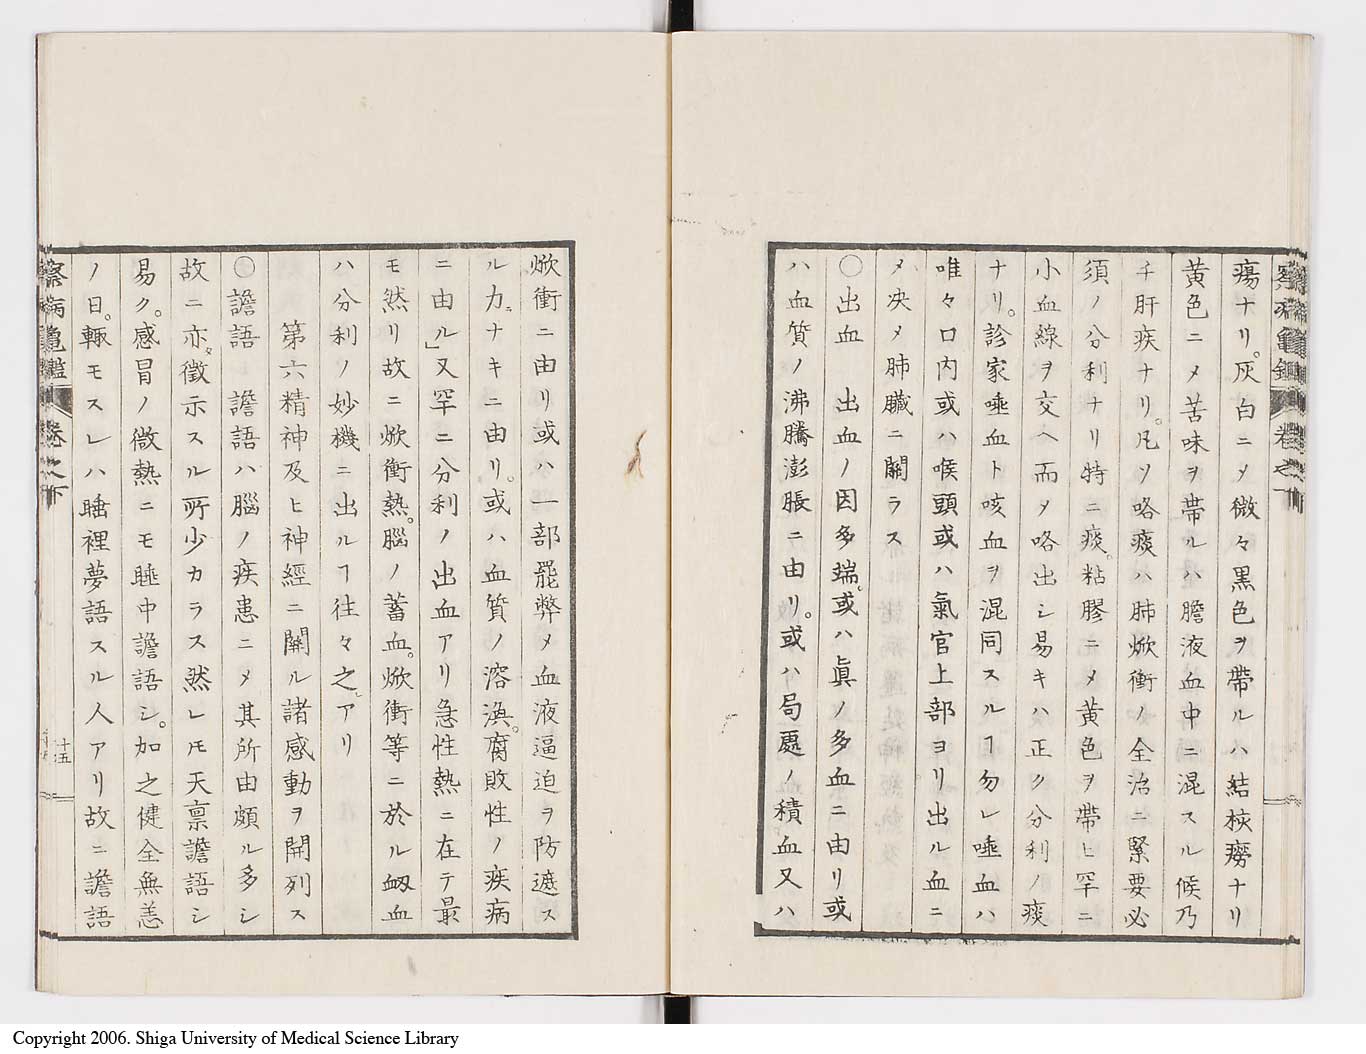 瘍ナリ。灰白ニ〆微々黒色ヲ帶ルハ結核癆ナリ
黄色ニ〆苦味ヲ帶ルハ膽液血中ニ混スル候乃
チ肝疾ナリ。凡ソ咯痰ハ肺焮衝ノ全治ニ緊要必
須ノ分利ナリ特ニ痰。粘膠ニ〆黄色ヲ帶ヒ罕ニ
小血線ヲ交ヘ而〆咯出シ易キハ正ク分利ノ痰
ナリ。診家唾血ト咳血ヲ混同スルヿ勿レ唾血ハ
唯々口内或ハ喉頭或ハ氣官上部ヨリ出ル血ニ
〆决〆肺臓ニ關ラス
○出血　出血ノ因多端。或ハ眞ノ多血ニ由リ或
ハ血質ノ沸騰澎脹ニ由リ。或ハ局處ノ積血又ハ
焮衝ニ由リ或ハ一部罷弊〆血液逼迫ヲ防遮ス
ル力。ナキニ由リ。或ハ血質ノ溶渙。腐敗性ノ疾病
ニ由ル」又罕ニ分利ノ出血アリ急性熱ニ在テ最
モ然リ故ニ焮衝熱。腦ノ蓄血。焮衝等ニ於ル衂血
ハ分利ノ妙機ニ出ルヿ往々之アリ
第六精神及ヒ神經ニ關ル諸感動ヲ開列ス
○譫語　譫語ハ腦ノ疾患ニ〆其所由頗ル多シ
故ニ亦。徴示スル所少カラス然レ𪜈天禀譫語シ
易ク。感冒ノ微熱ニモ睡中譫語シ。加之健全無恙
ノ日。輙モスレハ睡裡夢語スル人アリ故ニ譫語
察病亀鑑　卷之下
十五
Copyright 2006. Shiga University of Medical Science Library